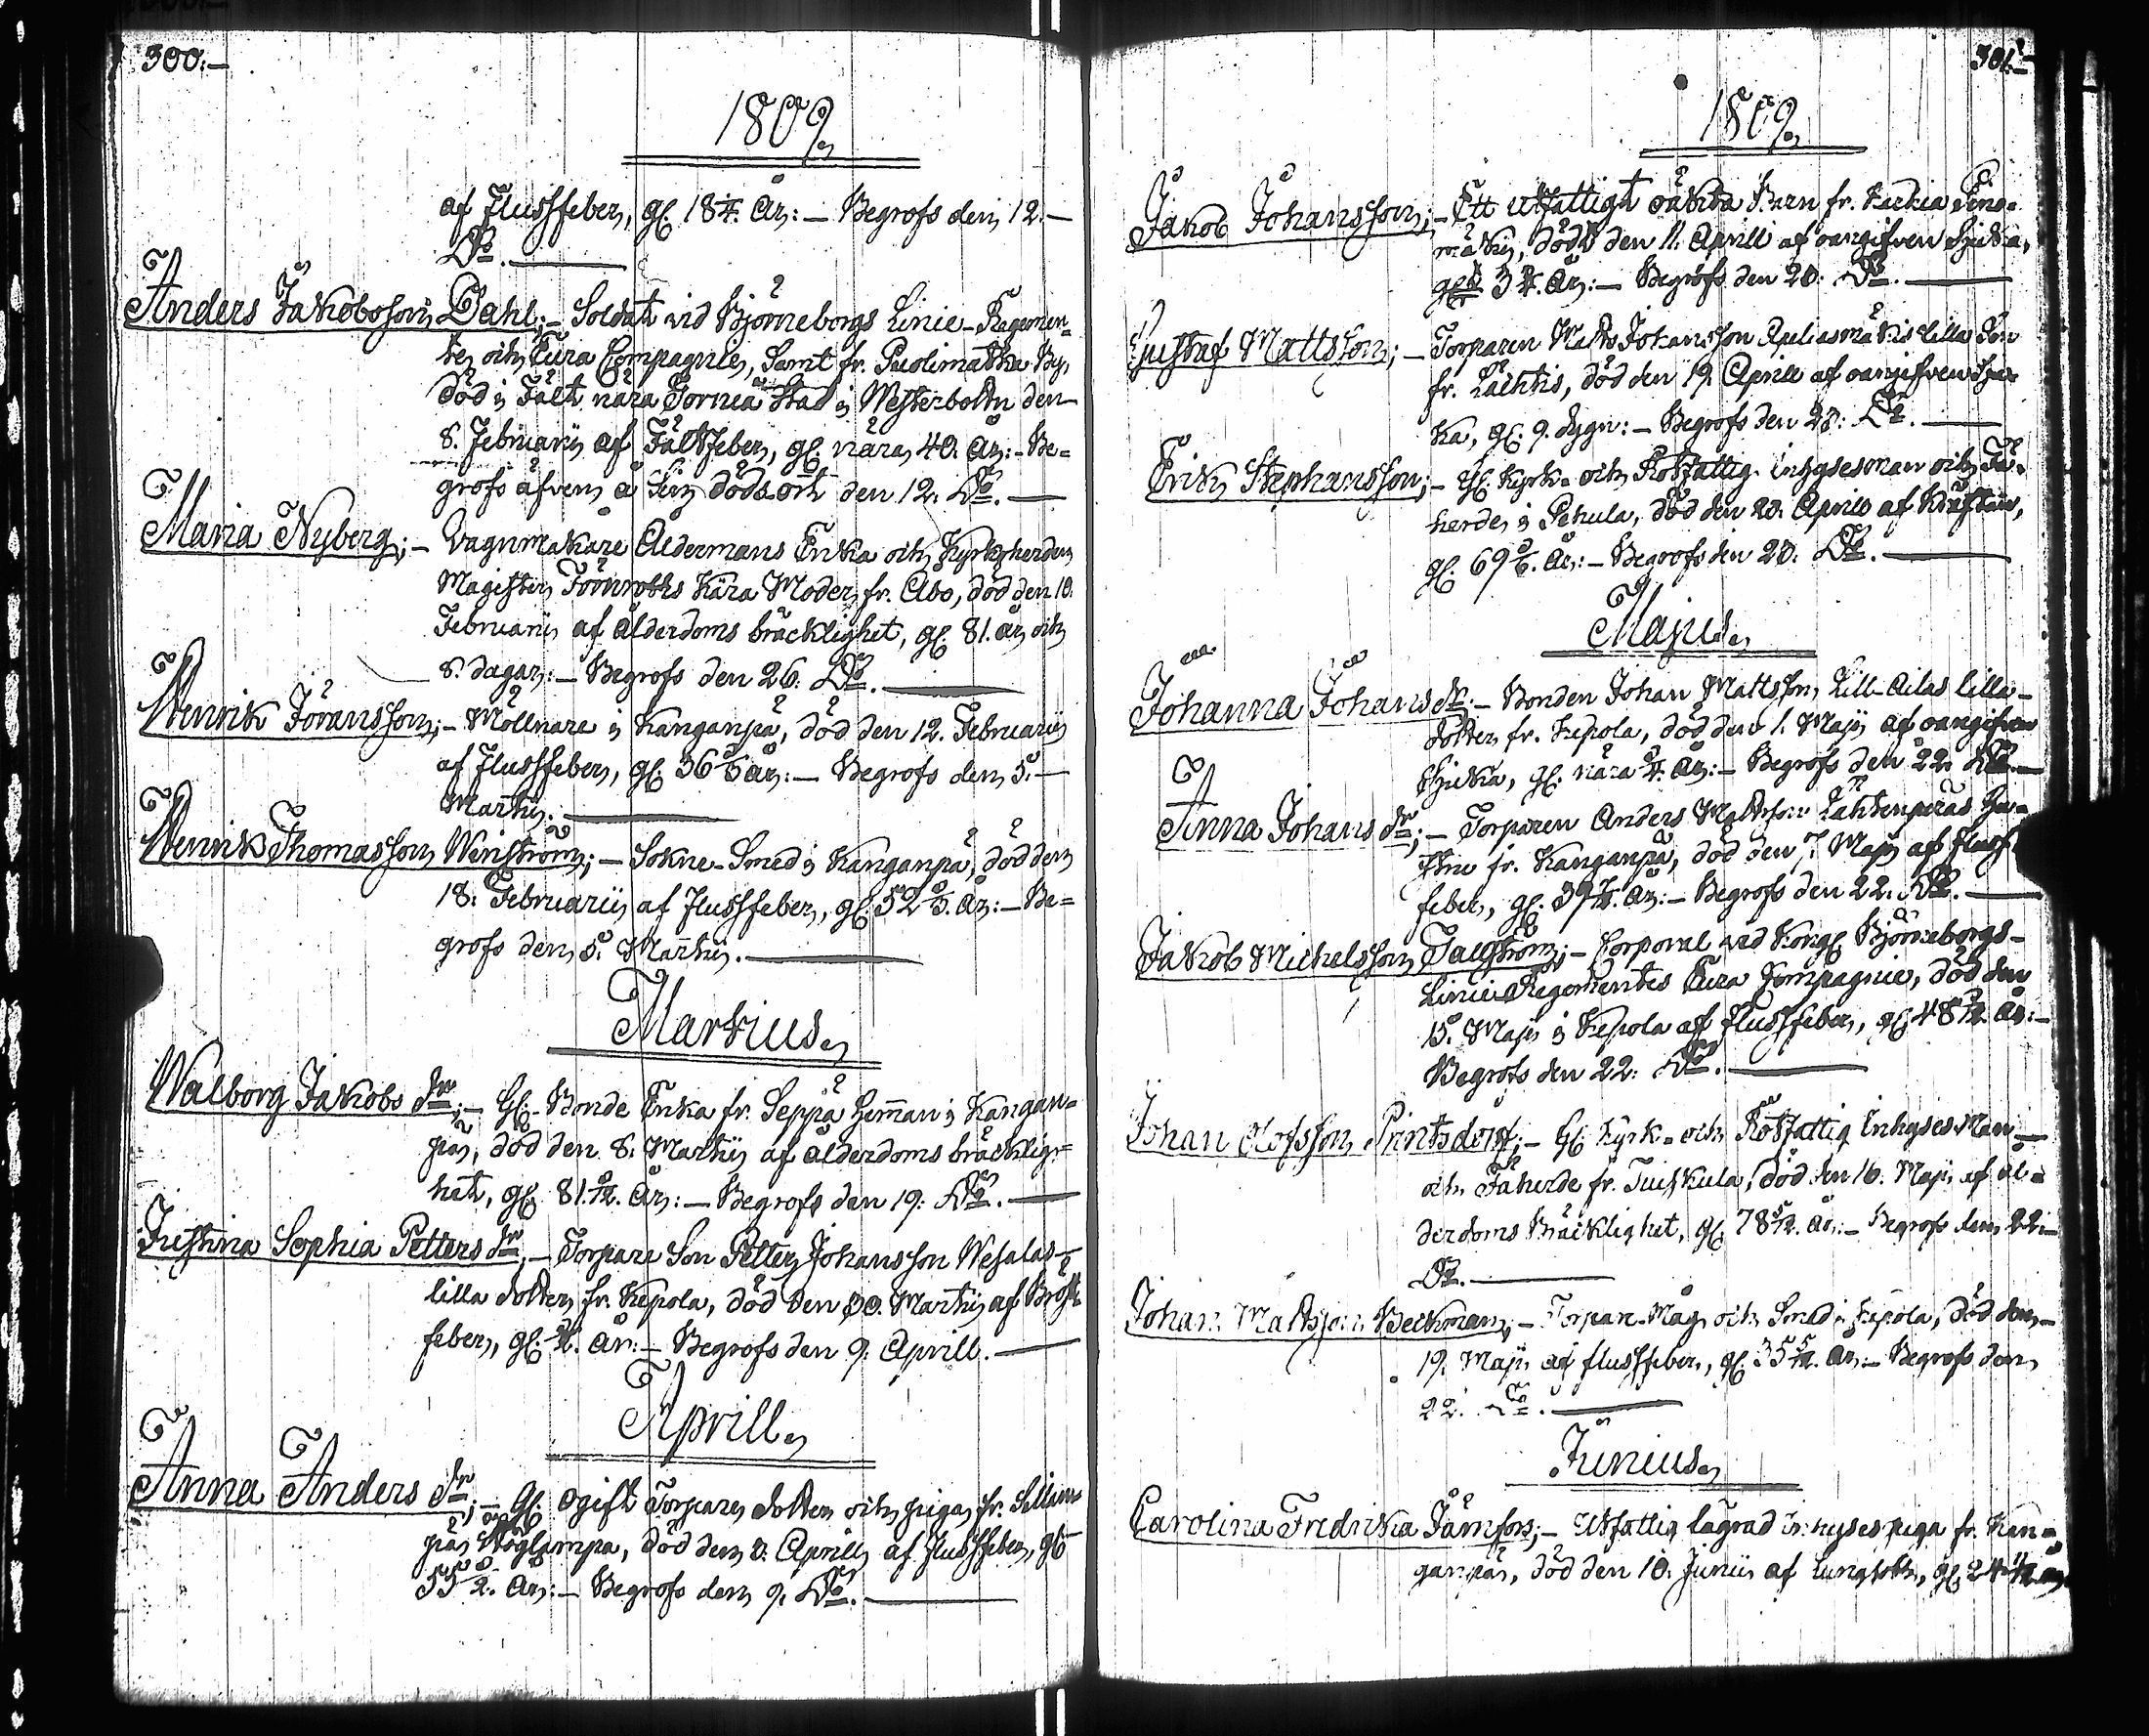 300.
1809.
af Flussfeber, gl. 18 År: — Begrofs den 12. —
D:o. —
Anders Jakobsson Dahl; — Soldat vid Björneborgs Linie-Regemen-
te och Eura Compagnie, Samt fr. By,
död i Fält nära Torneå Stad i Westerbottn den
8. Februarii af Fältfeber, gl. nära 40. År: — Be-
grofs äfven å Sin dödsort den 12. D:o. —
Maria Nyberg; — Vagnmakare Åldermans Enka och Kyrkoherden
Magister Törnroths Kära Moder fr. Åbo, död den 10.
Februarii af ålderdoms bräcklighet, gl. 81. år och
8. dagar: — Begrofs den 26. D:o. —
Henrik Göransson; — Möllnare i Kanganpä, död den 12. Februarii
af Flussfeber, gl. 36 År: — Begrofs den 5. —
Martii. —
Henrik Thomasson Winström; — Sokne-Smed i Kanganpä, död den
18. Februarii af Flussfeber, gl. 52 År: — Be-
grofs den 5. Martii. —
Martius.
Walborg Jakobs dr; — Gl. Bonde Enka fr. Seppä Heman i Kangan-
pä, död den 8. Martii af ålderdoms bräcklig-
het, gl. 81. År: — Begrofs den 19. D:o. —
Justina Sophia Petters dr; — Torpare Son Petter Johansson Wesalas
lilla dotter fr. Kepola, död den 30. Martii af Bröst-
feber, gl. År: — Begrofs den 9. Aprill. —
Aprill.
Anna Anders dr; — Gl. ogift Torpare dotter och piga fr.
död den Aprill af Flussfeber, gl.
55 År: — Begrofs den 9. D:o. —
301.
1809.
Jakob Johansson; — Ett utfattigt oäkta Barn fr.
död den 11. Aprill af oangifven Sjuka,
gl. 3 År: — Begrofs den 20. D:o. —
Gustaf Mattsson; — Torparen Matts Johansson lilla Son
fr. Lähtis, död den 19. Aprill af oangifven Sju-
ka, gl. 9. dygn: — Begrofs den D:o. —
Erik Stephansson; — Gl. Kyrk- och Rotfattig Inhysesman och Få-
herde i Pehula, död den 20. Aprill af Kräftan,
gl. 69 År: — Begrofs den D:o. —
Majus.
Johanna Johans dr; — Bonden Johan Mattsson Lill-Ailas lilla
dotter fr. Kepola, död den 1. Maji af oangifven
Sjuka, gl. nära År: — Begrofs den 22. D:o. —
Anna Johans dr; — Torparen Anders Mattsson Lahtenperäs Hu-
stru fr. Kanganpä, död den 7. Maji af Fluss-
feber, gl. 39 År: — Begrofs den 22. D:o. —
Jakob Michelsson Tallström; — Corporal vid Kongl. Björneborgs
Linie Regementes Eura Kompagnie, död den
15. Maji i Kepola af Flussfeber, gl. 48 År: —
Begrofs den 22. D:o. —
Johan Olofsson Printsdorf; — Gl. Kyrk- och Rotfattig Inhyses Man
och Fäherde fr. Tuiskula, död den 16. Maji af ål-
derdoms bräcklighet, gl. 78 År: — Begrofs den 22. —
D:o. —
Johan Mattsson Beckman; — Torpare-Måg och Smed i Kepola, död den
19. Maji af flussfeber, gl. 35 År: — Begrofs den
22. D:o. —
Junius.
Carolina Fredrika Jämfors; — Utfattig lagrad Inhyses piga fr. Kan-
ganpä, död den 10. Junii af Lungsot, gl. 24 År